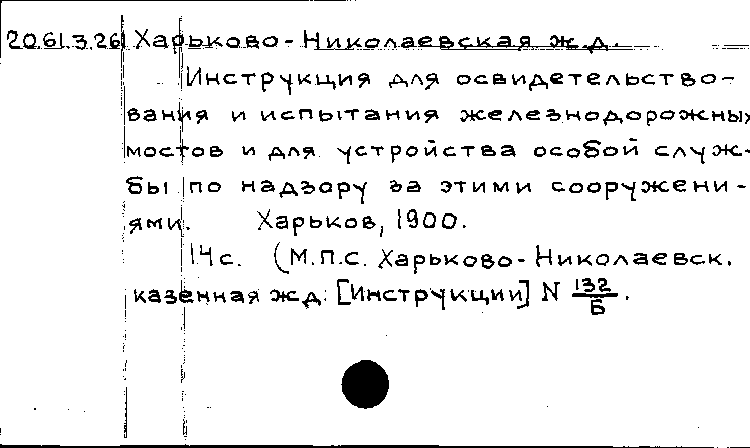 20.61.3.26 Харьково-Николаевская ж.д.
Инструкция для освидетельство-
вания и испытания железнодорожных
мостов и для устройства особой служ-
бы по надзору за этими сооружени-
ями. Харьков, 1900.
14 с. (М.П.С. Харьково-Николаевск.
казенная ж.д. [Инструкции] N 132/Б.